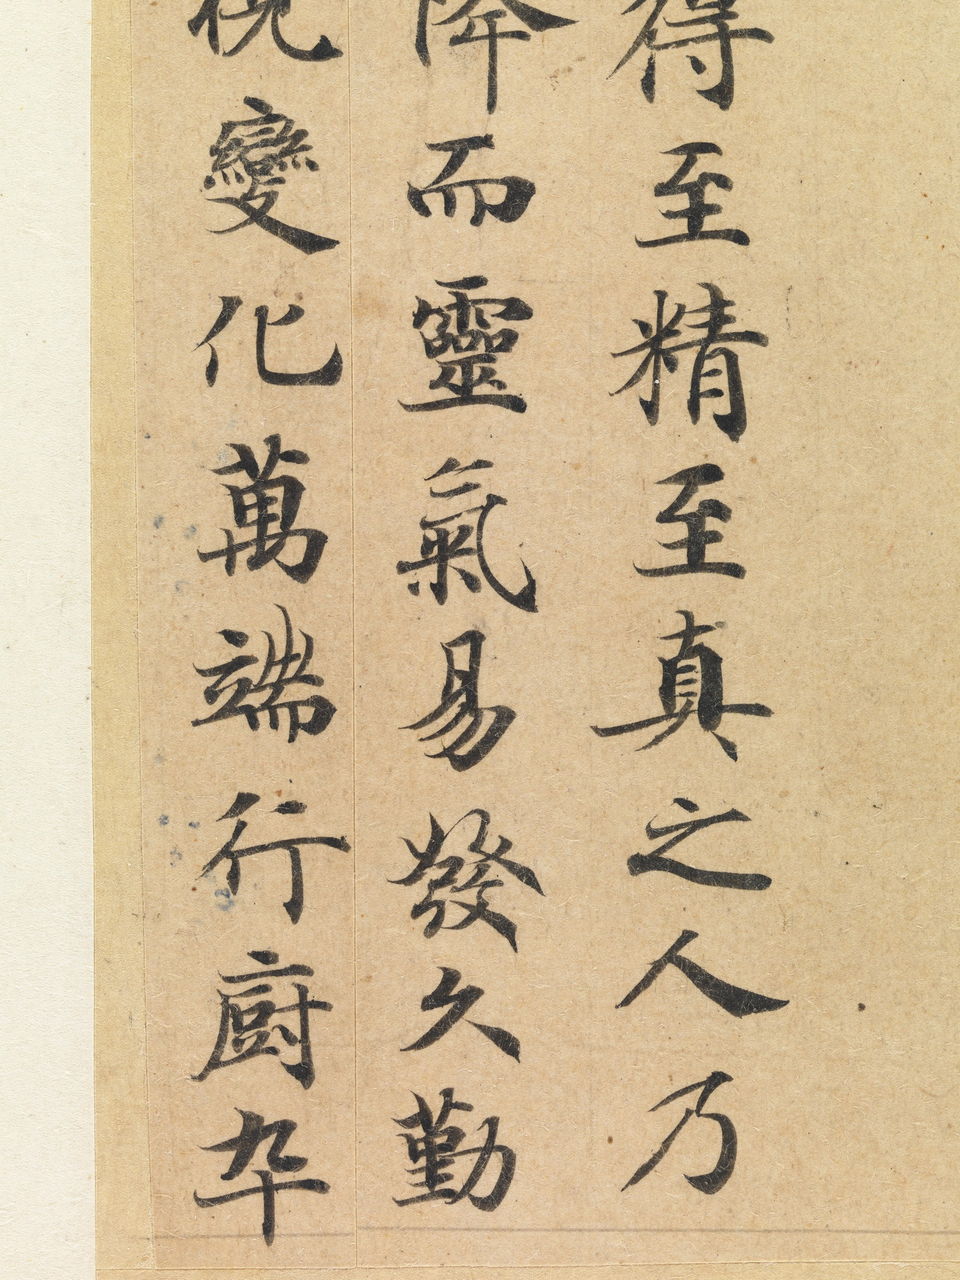 得至精至真之人乃
降而靈氣易發久勤
視變化萬端行廚卒